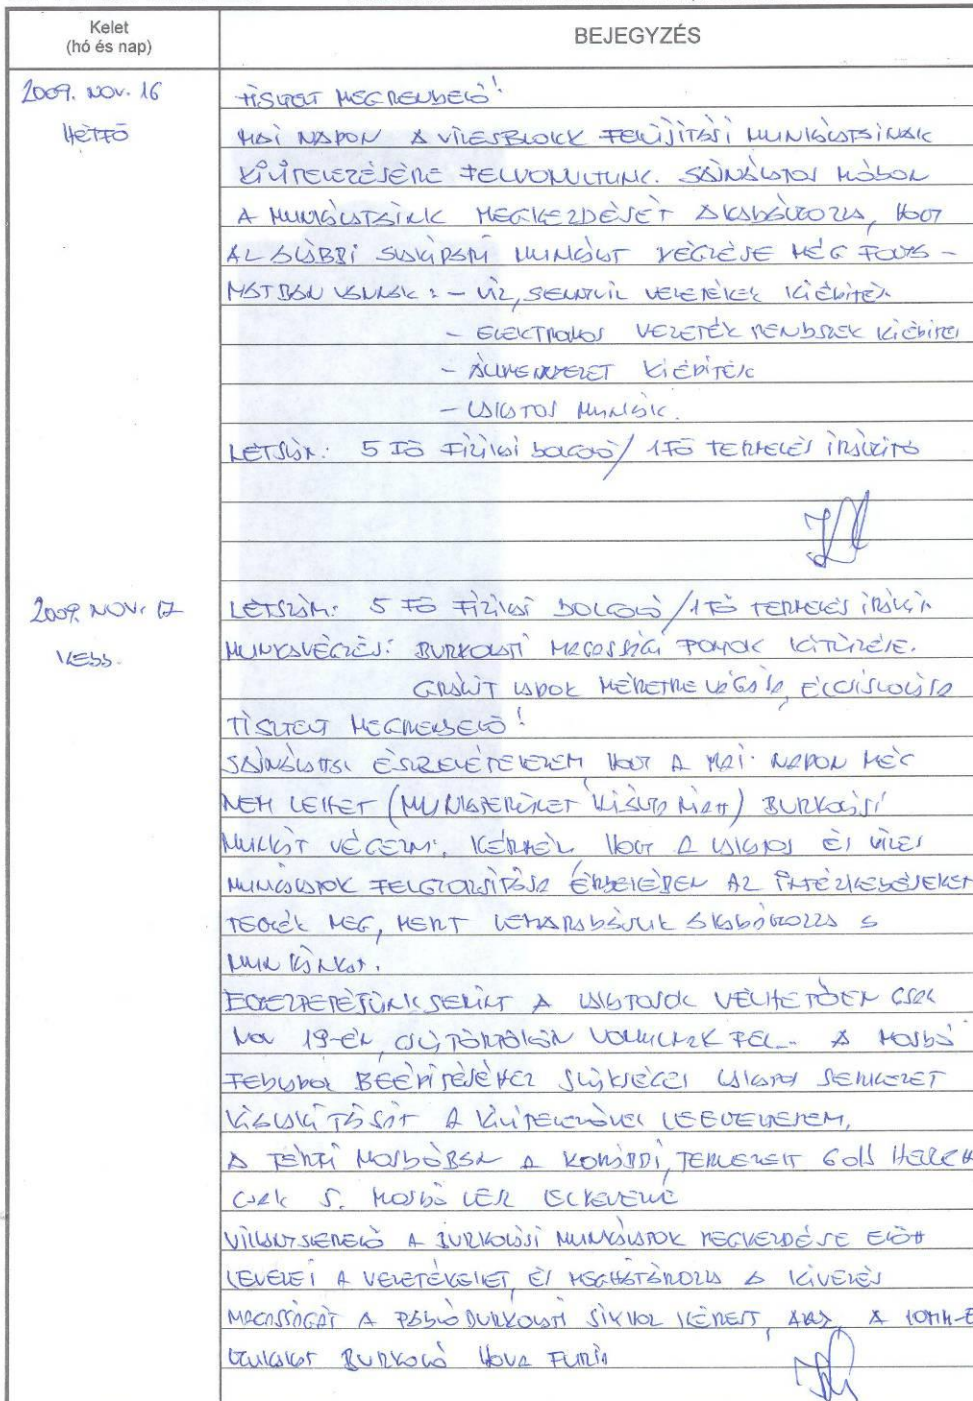 Kelet
(hó és nap)
BEJEGYZÉS
2009. NOV. 16
HÉTFŐ
TISZTELT MEGRENDELŐ!
MAI NAPON A VIZESBLOKK FELÚJÍTÁSI MUNKÁLATAINAK
KIVITELEZÉSÉRE FELVONULTUNK. SAJNÁLATOS MÓDON
A MUNKÁLATAINK MEGKEZDÉSÉT AKADÁLYOZZA, HOGY
AZ ALÁBBI SZAKIPARI MUNKÁLAT VÉGZÉSE MÉG FOLYA-
MATBAN VANNAK: - VÍZ, SZENNYVÍZ VEZETÉKEK KIÉPÍTÉSE
- ELEKTROMOS VEZETÉK RENDSZER KIÉPÍTÉSE
- ÁLMENNYEZET KIÉPÍTÉSE
- LAKATOS MUNKÁK.
LÉTSZÁM: 5 FŐ FIZIKAI DOLGOZÓ/ 1 FŐ TERMELÉS IRÁNYÍTÓ
2009. NOV. 17
KEDD.
LÉTSZÁM: 5 FŐ FIZIKAI DOLGOZÓ/1 FŐ TERMELÉS IRÁNYÍTÓ
MUNKAVÉGZÉS: BURKOLATI MAGASSÁGI PONTOK KITŰZÉSE.
GRÁNIT LAPOK MÉRETRE VÁGÁSA, ÉLCSISZOLÁSA
TISZTELT MEGRENDELŐ!
SAJNÁLATTAL ÉSZREVÉTELEZEM, HOGY A MAI NAPON MÉG
NEM LEHET (MUNKATERÜLET MIATT) BURKOLÁSI
MUNKÁT VÉGEZNI, KÉRNÉM, HOGY A LAKATOS ÉS VIZES
MUNKÁLATOK FELGYORSÍTÁSA ÉRDEKÉBEN AZ INTÉZKEDÉSEKET
TEGYÉK MEG, MERT LEMARADÁSUK AKADÁLYOZZA A
MUNKÁNKAT.
EGYEZTETÉSÜNK SZERINT A LAKATOSOK VÉLHETŐEN CSAK
NOV 19-ÉN, CSÜTÖRTÖKÖN VONULNAK FEL. A MOSDÓ
BEÉPÍTÉSÉHEZ SZÜKSÉGES LAKATOS SZERKEZET
KIALAKÍTÁSÁT A KIVITELEZŐVEL LEEGYEZTETEM,
A FÉRFI MOSDÓBAN A KORÁBBI, TERVEZETT 6 DB HELYETT
CSAK 5. MOSDÓ LESZ ELHELYEZVE
VILLANYSZERELŐ A BURKOLÁSI MUNKÁLATOK MEGKEZDÉSE ELŐTT
A VEZETÉKEKET, ÉS MEGHATÁROZZA A KIVEZETÉS
MAGASSÁGÁT A PADLÓBURKOLATI SÍKHOZ KÉPEST, A 10MM-ES
LYUKAKAT BURKOLÓ HOVA FÚRJA